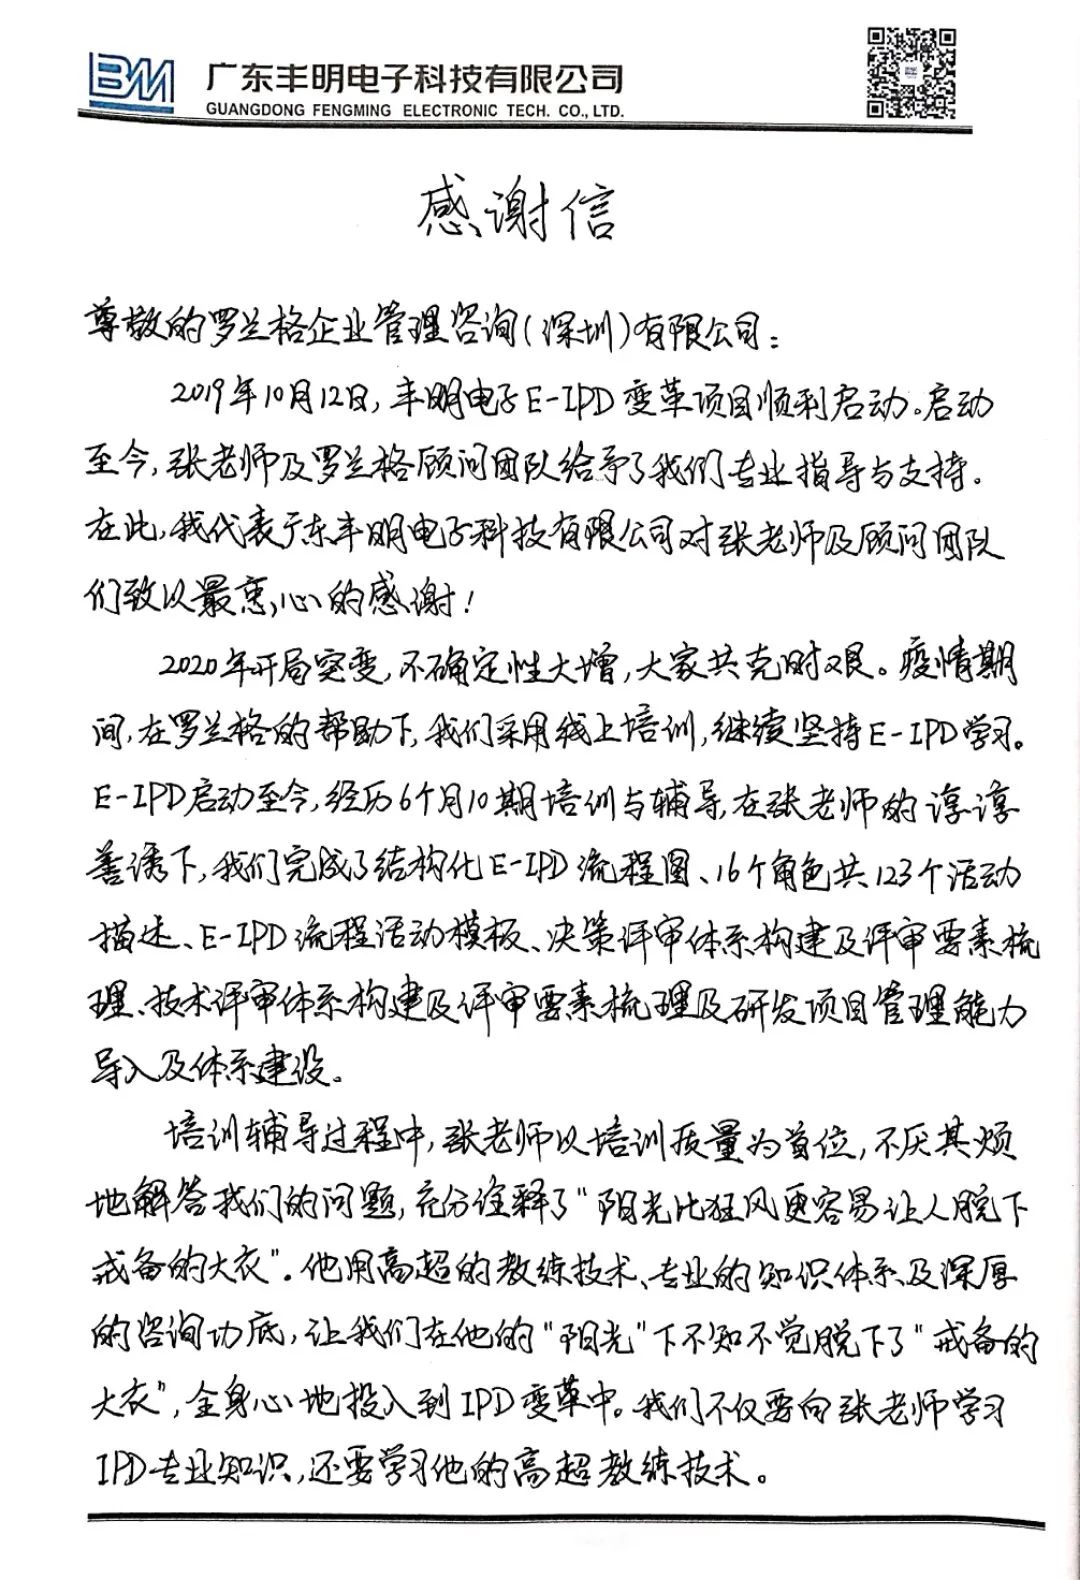 BM
广东丰明电子科技有限公司
GUANGDONG FENGMING ELECTRONIC TECH. CO., LTD.
感谢信
尊敬的罗兰格企业管理咨询(深圳)有限公司:
2019年10月12日,丰明电子E-IPD变革项目顺利启动。启动
至今,张老师及罗兰格顾问团队给予了我们专业指导与支持。
在此,我代表广东丰明电子科技有限公司对张老师及顾问团队
们致以最衷心的感谢!
2020年开局突变,不确定性大增,大家共克时艰。疫情期
间,在罗兰格的帮助下,我们采用线上培训,继续坚持E-IPD学习。
E-IPD启动至今,经历6个月10期培训与辅导,在张老师的谆谆
善诱下,我们完成了结构化E-IPD流程图、16个角色共123个活动
描述、E-IPD流程活动模板、决策评审体系构建及评审要素梳
理、技术评审体系构建及评审要素梳理及研发项目管理能力
导入及体系建设。
培训辅导过程中,张老师以培训质量为首位,不厌其烦
地解答我们的问题,充分诠释了“阳光比狂风更容易让人脱下
戒备的大衣”。他用高超的教练技术、专业的知识体系及深厚
的咨询功底,让我们在他的“阳光”下不知不觉脱下了“戒备的
大衣”,全身心地投入到IPD变革中。我们不仅要向张老师学习
IPD专业知识,还要学习他的高超教练技术。